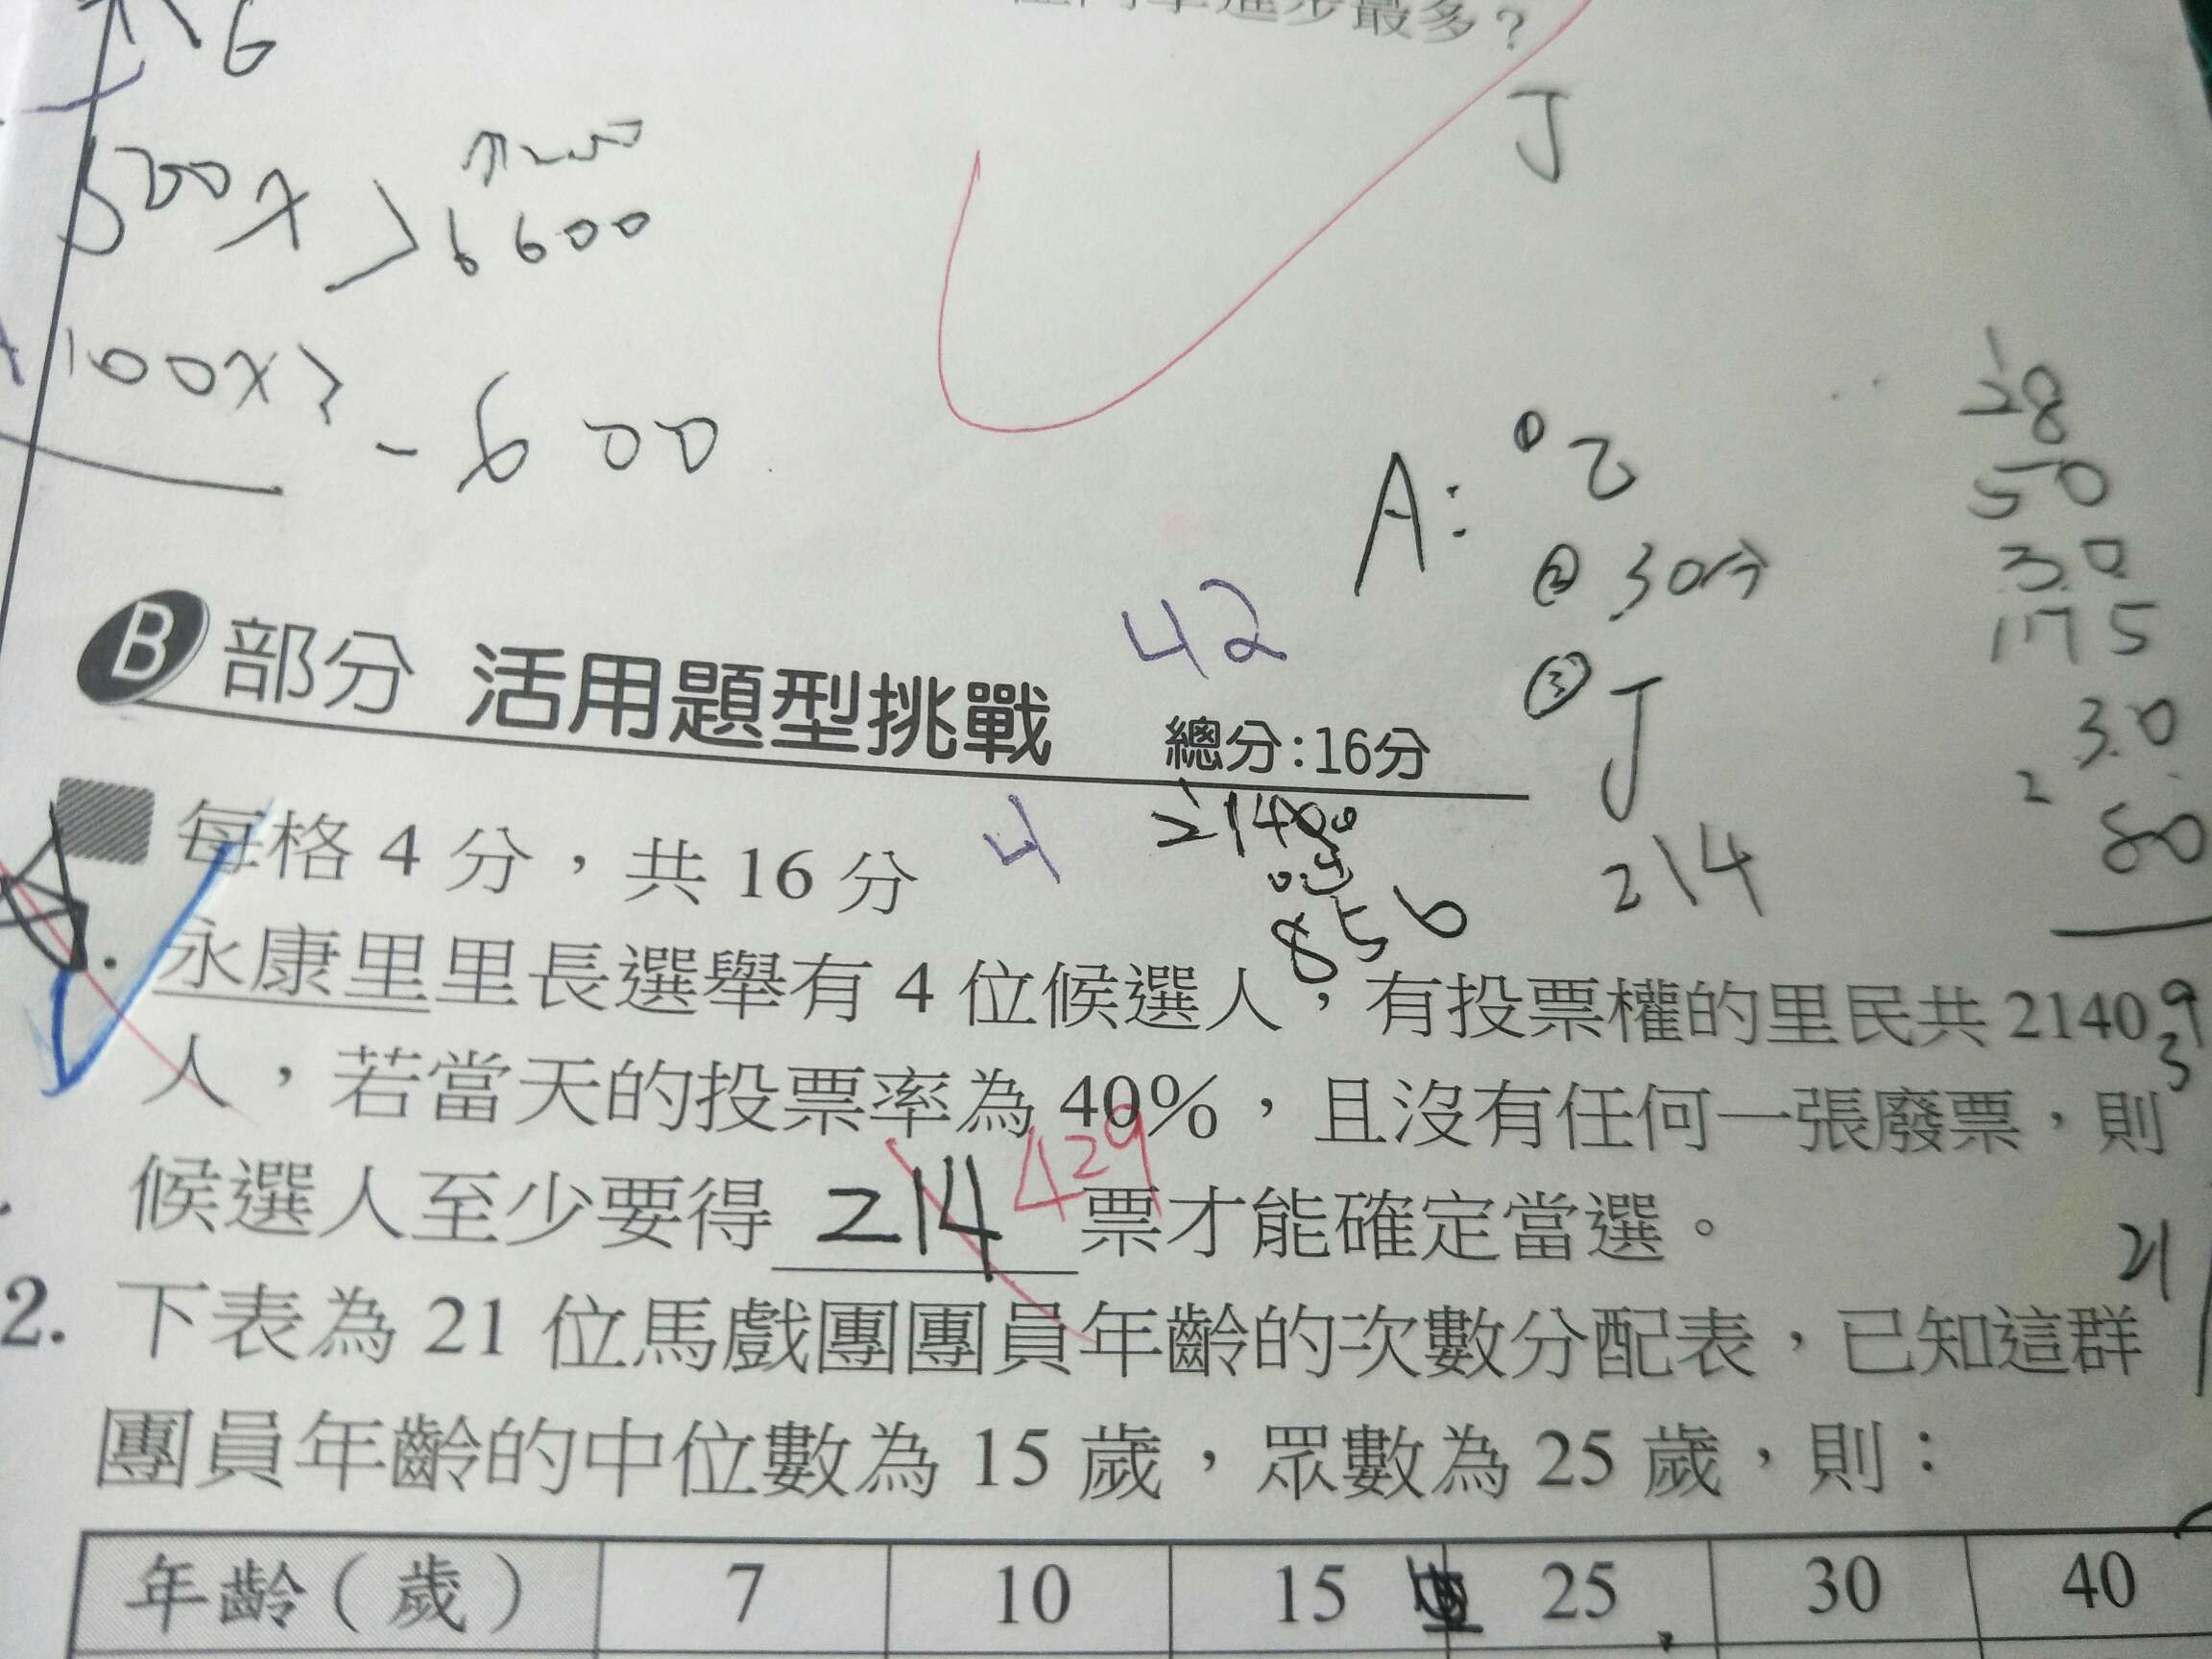 進步最多？
6
J
500x
6600
100x2
-600
28
50
30
175
30
2
80
A：① 乙
② 30分
③ J
214
42
B 部分 活用題型挑戰 總分：16分
每格 4 分，共 16 分
4
2140
856
永康里里長選舉有 4 位候選人，有投票權的里民共 2140
9
3
人，若當天的投票率為 40%，且沒有任何一張廢票，則
候選人至少要得 214 429 票才能確定當選。
21
2. 下表為 21 位馬戲團團員年齡的次數分配表，已知這群
團員年齡的中位數為 15 歲，眾數為 25 歲，則：
年齡（歲） 7 10 15 25 30 40